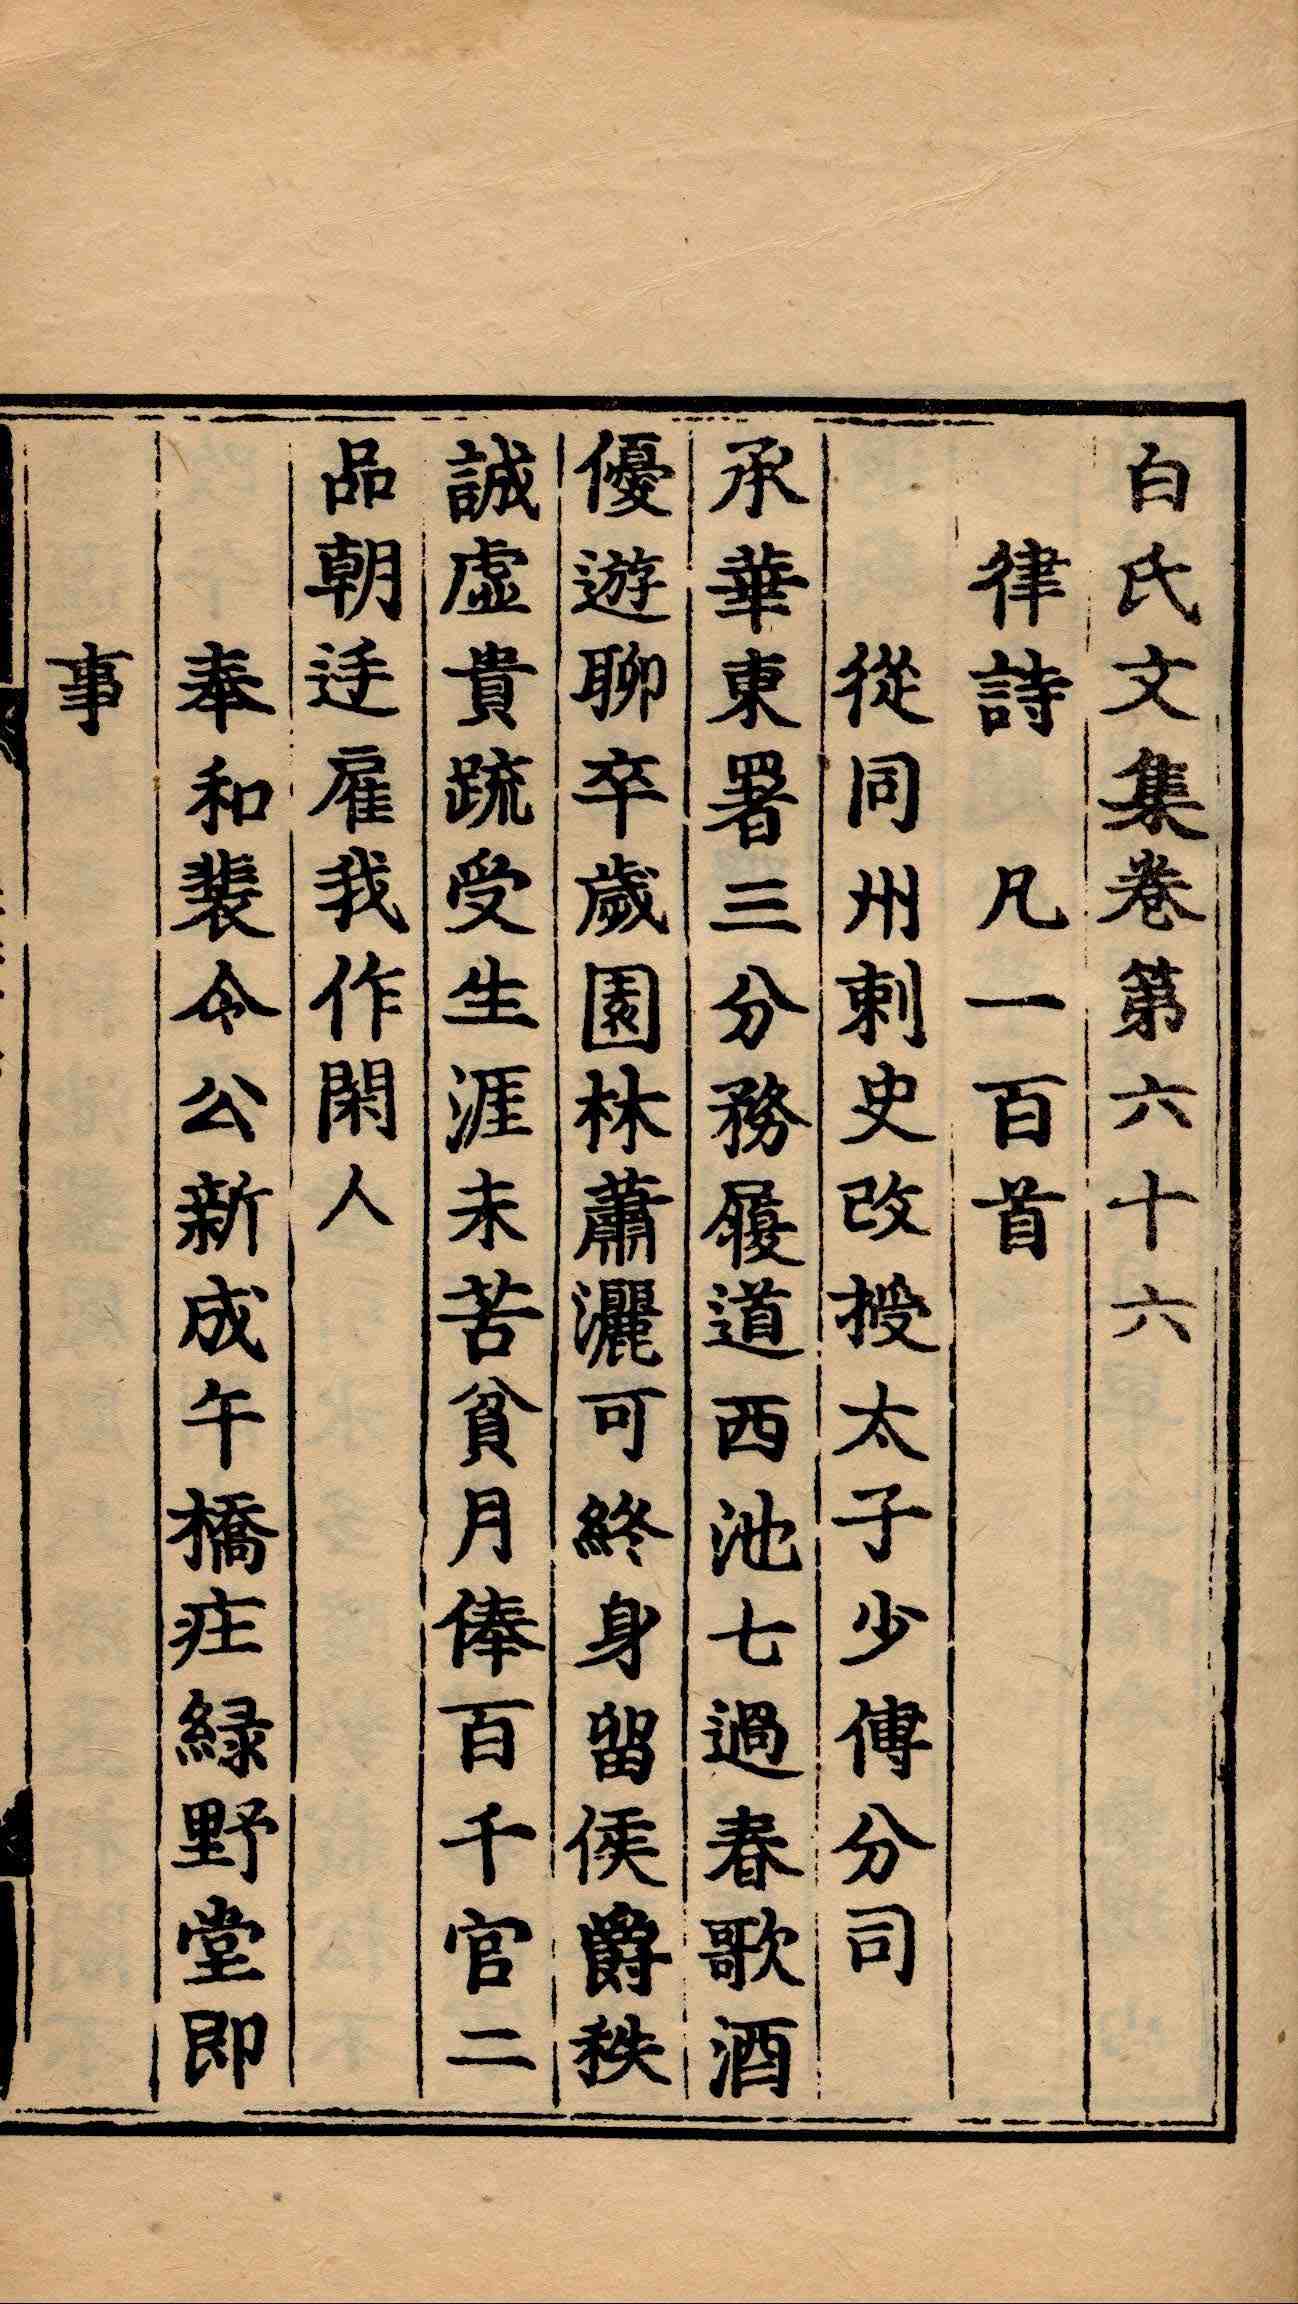 白氏文集卷第六十六
律詩　凡一百首
從同州刺史改授太子少傅分司
承華東署三分務履道西池七過春歌酒
優遊聊卒歲園林蕭灑可終身留侯爵秩
誠虛貴疏受生涯未苦貧月俸百千官二
品朝廷雇我作閑人
奉和裴令公新成午橋庄緑野堂即
事